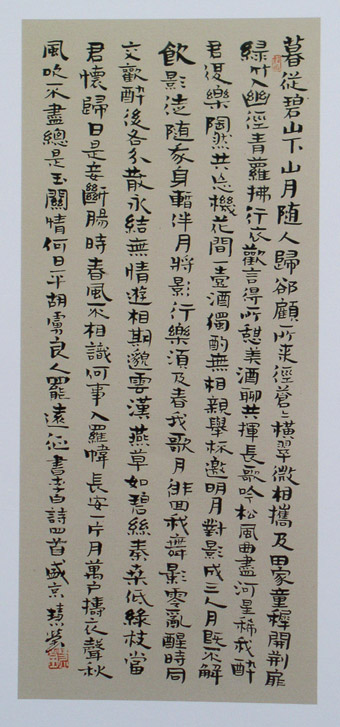 暮從碧山下山月随人歸卻顧所來徑蒼〻橫翠微相攜及田家童穉開荊扉
綠竹入幽徑青蘿拂行衣歡言得所憩美酒聊共揮長歌吟松風曲盡河星稀我醉
君復樂陶然共忘機花間一壺酒獨酌無相親舉杯邀明月對影成三人月既不解
飲影徒随我身暫伴月將影行樂須及春我歌月徘徊我舞影零亂醒時同
交歡醉後各分散永結無情遊相期邈雲漢燕草如碧絲秦桑低綠枝當
君懷歸日是妾斷腸時春風不相識何事入羅幃長安一片月萬户擣衣聲秋
風吹不盡總是玉關情何日平胡虜良人罷遠征書李白詩四首盛京